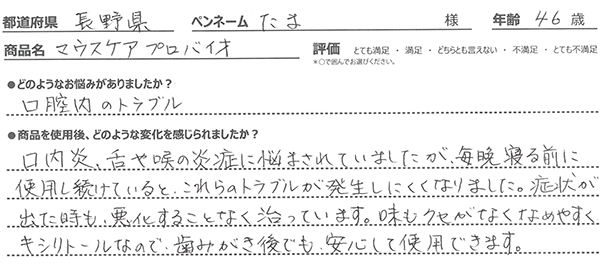 都道府県 長野県 ペンネーム たま 様 年齢 46 歳
商品名 マウスケア プロバイオ 評価 とても満足 ・ 満足 ・ どちらとも言えない ・ 不満足 ・ とても不満足
*○で囲んでお選びください。
●どのようなお悩みがありましたか?
口腔内のトラブル
●商品を使用後、どのような変化を感じられましたか?
口内炎、舌や喉の炎症に悩まされていましたが、毎晩寝る前に
使用し続けていると、これらのトラブルが発生しにくくなりました。症状が
出た時も、悪化することなく治っています。味もクセがなくなめやすく
キシリトールなので、歯みがき後でも、安心して使用できます。